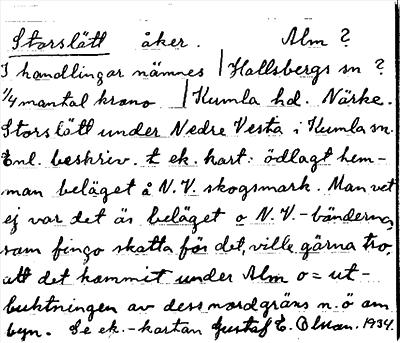 Storslätt åker. Alm ?
I handlingar nämnes | Hallsbergs sn ?
1/4 mantal krono | Kumla hd. Närke.
Storslätt under Nedre Vesta i Kumla sn.
Enl. beskriv. t. ek. kart: ödlagt hem-
man beläget å N.V. skogsmark. Man vet
ej var det är beläget o N.V.-bänderna,
som fingo skatta för det, ville gärna tro,
att det kommit under Alm o = ut-
buktningen av dess nordgräns n.ö om
byn. Se ek.-kartan Gustaf E. Olsson. 1934.